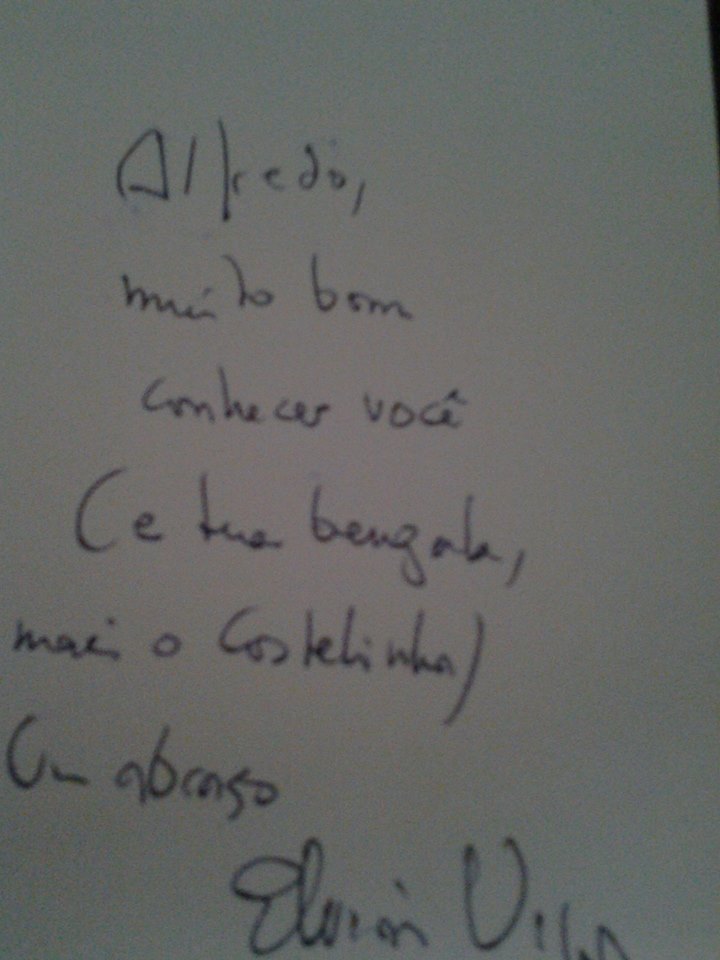 Alfredo,
muito bom
conhecer você
(e tua bengala,
mais o Costelinha)
Um abraço